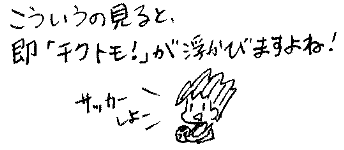 こういうの見ると、
即「チクトモ!」が浮かびますよね!
サッカー
しよー